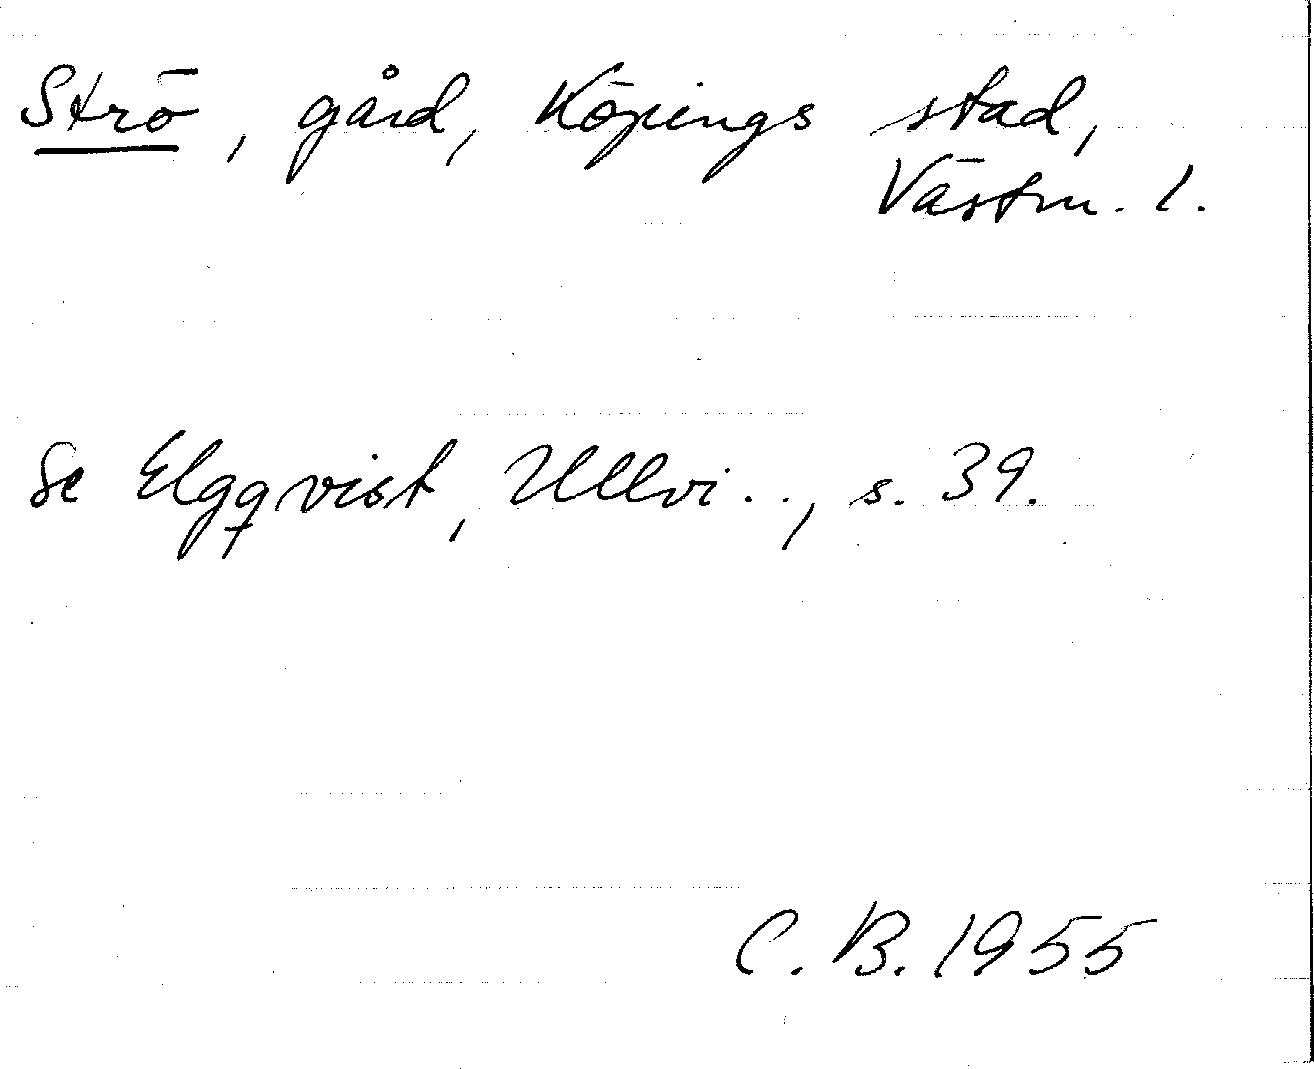 Strö, gård, Köpings stad,
Västm. l.
Se Elgqvist, Ullvi.., s. 39.
C. B. 1955